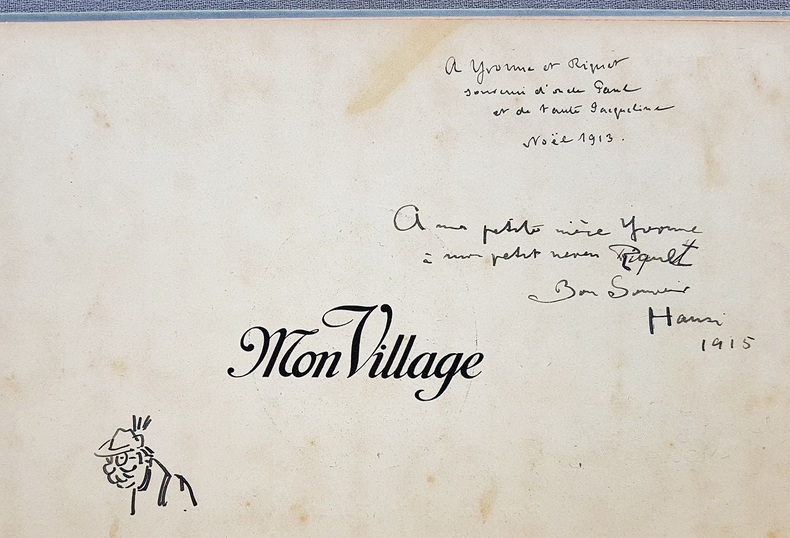 A Yvonne et Riquet
souvenir d'oncle Paul
et de tante Jacqueline
Noël 1913.
A ma petite nièce Yvonne
à mon petit neveu Riquet
Bon Souvenir
Hansi
1915
Mon Village